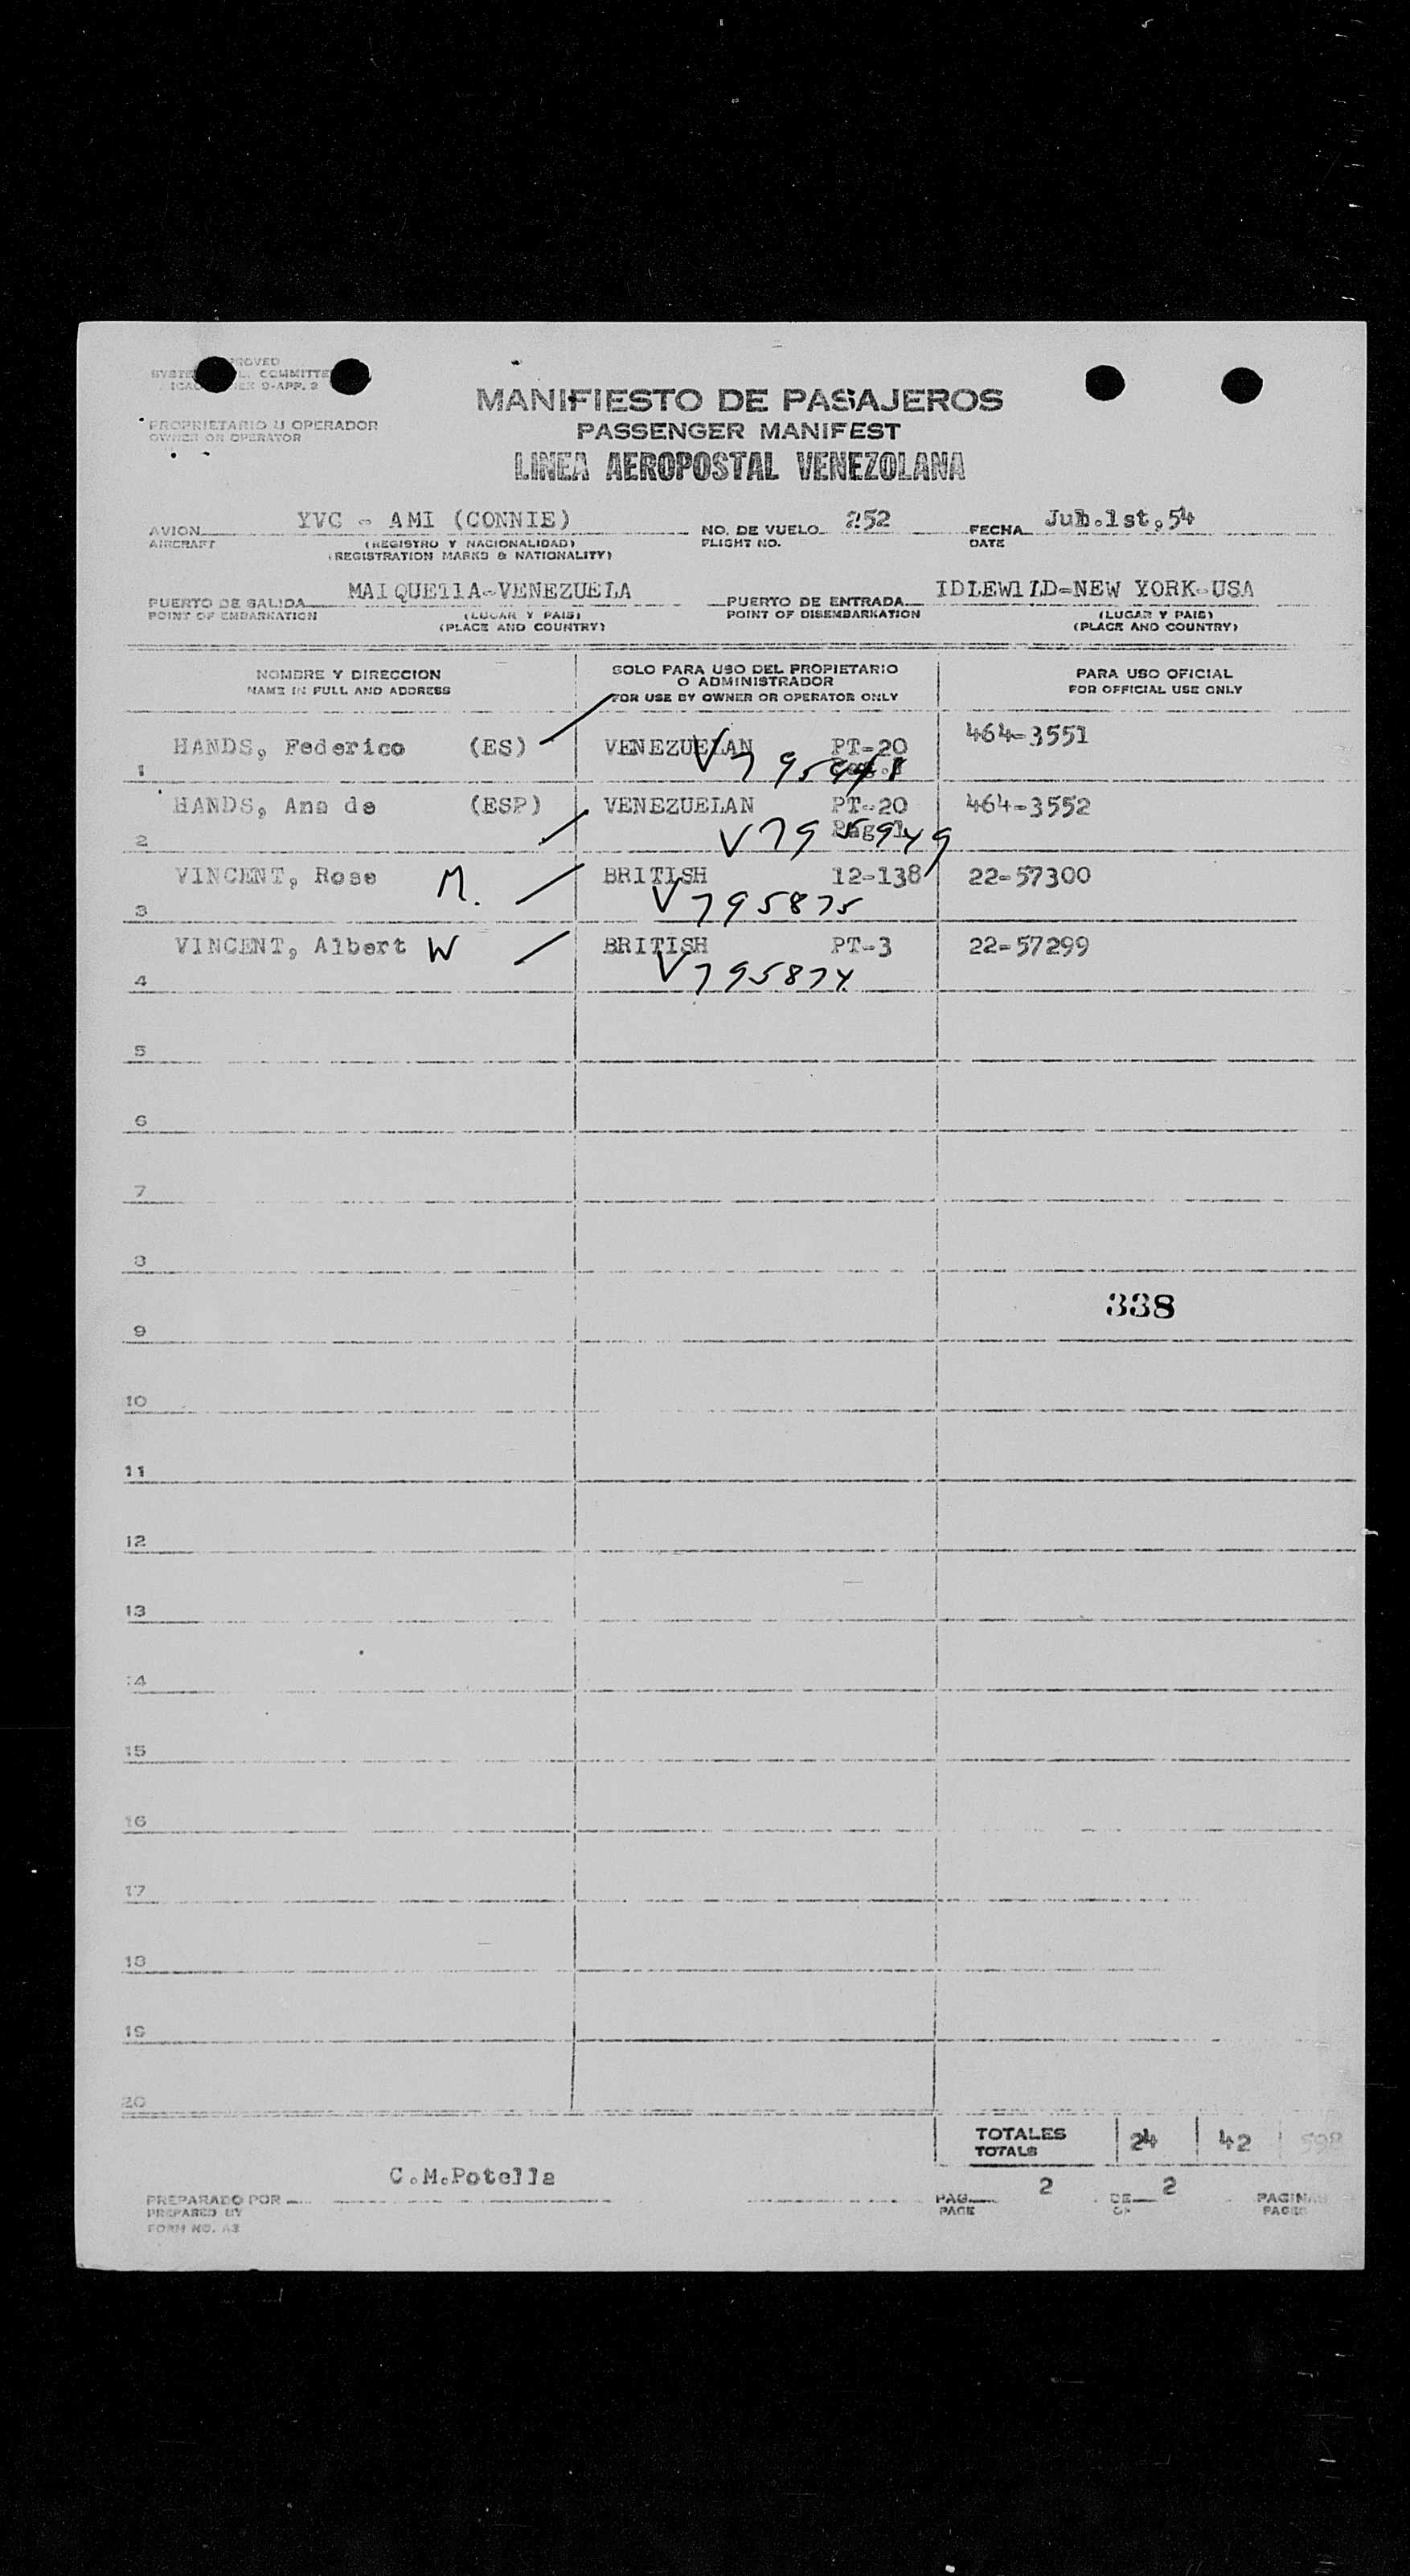 APPROVED
COMMITTEE
9-APP. 2
MANIFIESTO DE PASAJEROS
PROPRIETARIO U OPERADOR
OWNER OR OPERATOR
PASSENGER MANIFEST
LINEA AEROPOSTAL VENEZOLANA
AVION YVC - AMI (CONNIE) NO. DE VUELO 252 FECHA Jun.1st,54
AIRCRAFT (REGISTRO Y NACIONALIDAD) FLIGHT NO. DATE
(REGISTRATION MARKS & NATIONALITY)
PUERTO DE SALIDA MAIQUETIA-VENEZUELA PUERTO DE ENTRADA IDLEWILD-NEW YORK-USA
POINT OF EMBARKATION (LUGAR Y PAIS) POINT OF DISEMBARKATION (LUGAR Y PAIS)
(PLACE AND COUNTRY) (PLACE AND COUNTRY)
NOMBRE Y DIRECCION SOLO PARA USO DEL PROPIETARIO PARA USO OFICIAL
O ADMINISTRADOR
NAME IN FULL AND ADDRESS FOR USE BY OWNER OR OPERATOR ONLY FOR OFFICIAL USE ONLY
HANDS, Federico (ES) VENEZUELAN PT-20 464-3551
1 V795948
HANDS, Ana de (ESP) VENEZUELAN PT-20 464-3552
2 Pag.1 V795949
VINCENT, Rose M. BRITISH 12-138 22-57300
3 V795875
VINCENT, Albert W BRITISH PT-3 22-57299
4 V795874
5
6
7
8
338
9
10
11
12
13
14
15
16
17
18
19
20
TOTALES 24 42 598
TOTALS
C.M.Potella
PREPARADO POR PAG. 2 DE 2 PAGINAS
PREPARED BY PAGE OF PAGES
FORM NO. A3